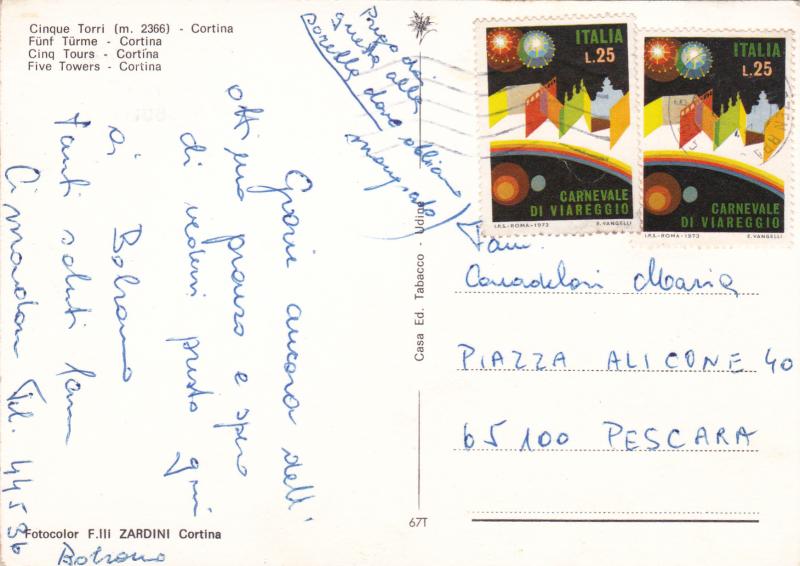 Cinque Torri (m. 2366) - Cortina
Fünf Türme - Cortina
Cinq Tours - Cortina
Five Towers - Cortina
Grazie ancora dell'
ottimo pranzo e spero
di vedervi presto qui
a Bolzano
tanti saluti fam
Tel. 44596
Bolzano
Prego dai
questa alla
sorella dove abbiamo
mangiato)
ITALIA
L.25
CARNEVALE
DI VIAREGGIO
I.P.S.-ROMA-1973 E. VANGELLI
ITALIA
L.25
CARNEVALE
DI VIAREGGIO
I.P.S.-ROMA-1973 E. VANGELLI
Fam.
Maria
PIAZZA ALICONE 40
65100 PESCARA
Casa Ed. Tabacco - Udine
Fotocolor F.lli ZARDINI Cortina
67T